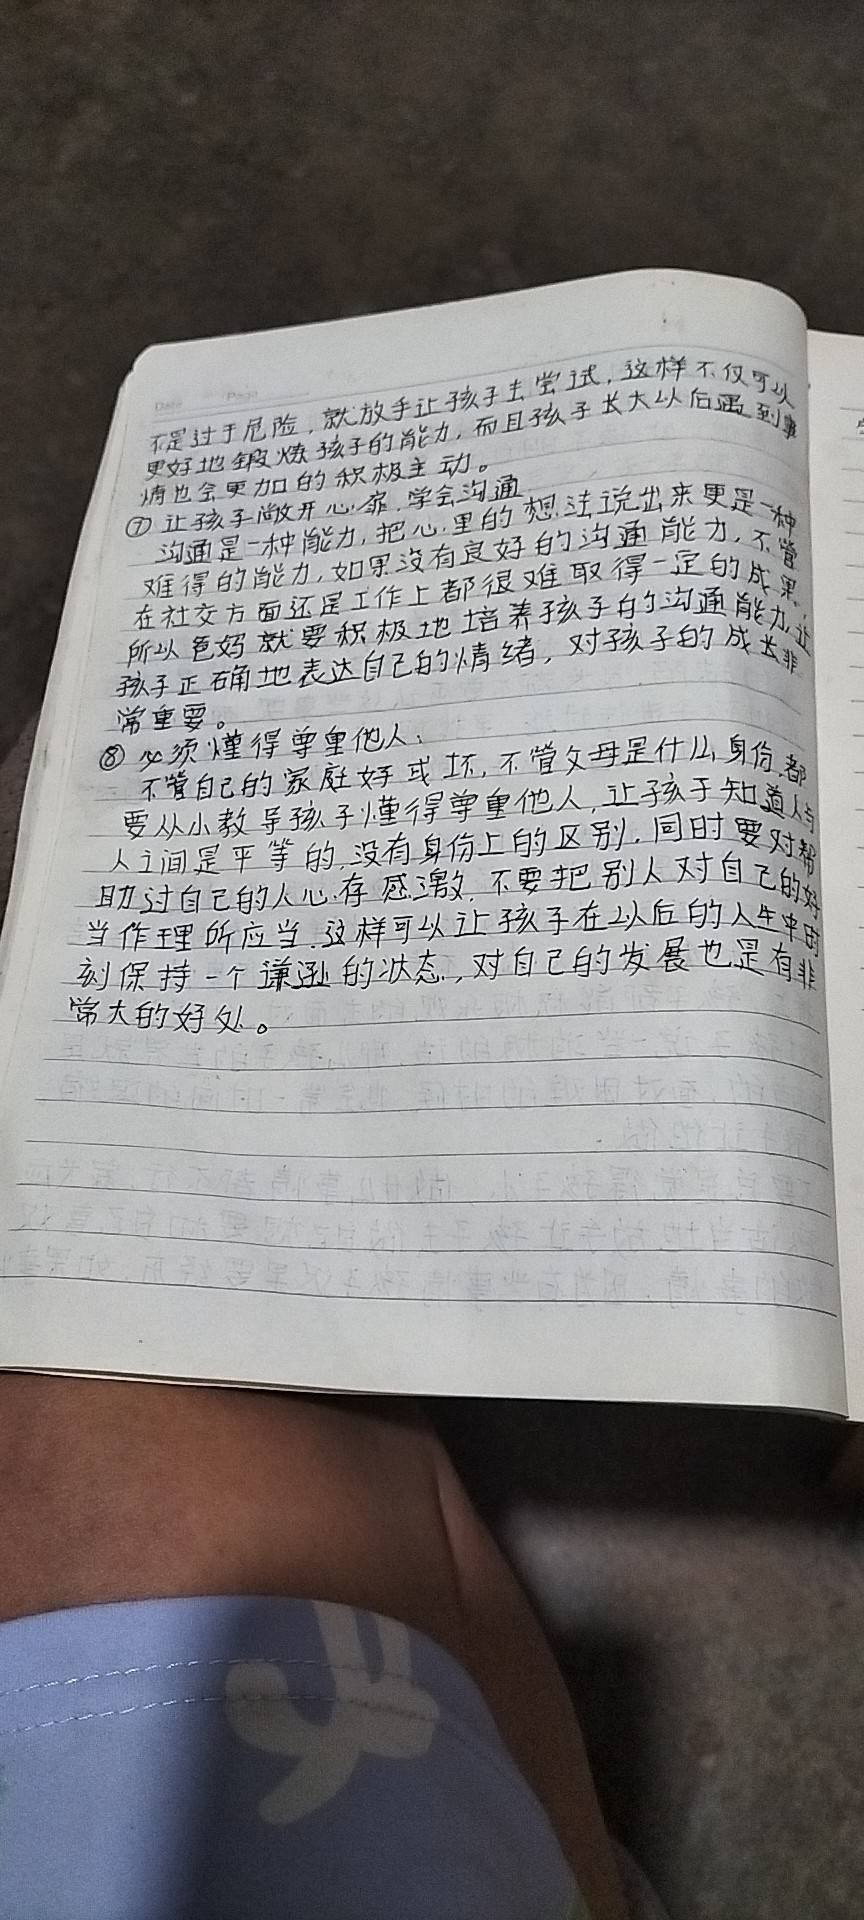 不是过于危险，就放手让孩子去尝试，这样不仅可以
更好地锻炼孩子的能力，而且孩子长大以后遇到事
情也会更加的积极主动。
⑦ 让孩子敞开心扉，学会沟通
沟通是一种能力，把心里的想法说出来更是一种
难得的能力，如果没有良好的沟通能力，不管
在社交方面还是工作上都很难取得一定的成果，
所以爸妈就要积极地培养孩子的沟通能力，让
孩子正确地表达自己的情绪，对孩子的成长非
常重要。
⑧ 必须懂得尊重他人、
不管自己的家庭好或坏，不管父母是什么身份，都
要从小教导孩子懂得尊重他人，让孩子知道人与
人之间是平等的，没有身份上的区别，同时要对帮
助过自己的人心存感激，不要把别人对自己的好
当作理所应当，这样可以让孩子在以后的人生中时
刻保持一个谦逊的状态，对自己的发展也是有非
常大的好处。